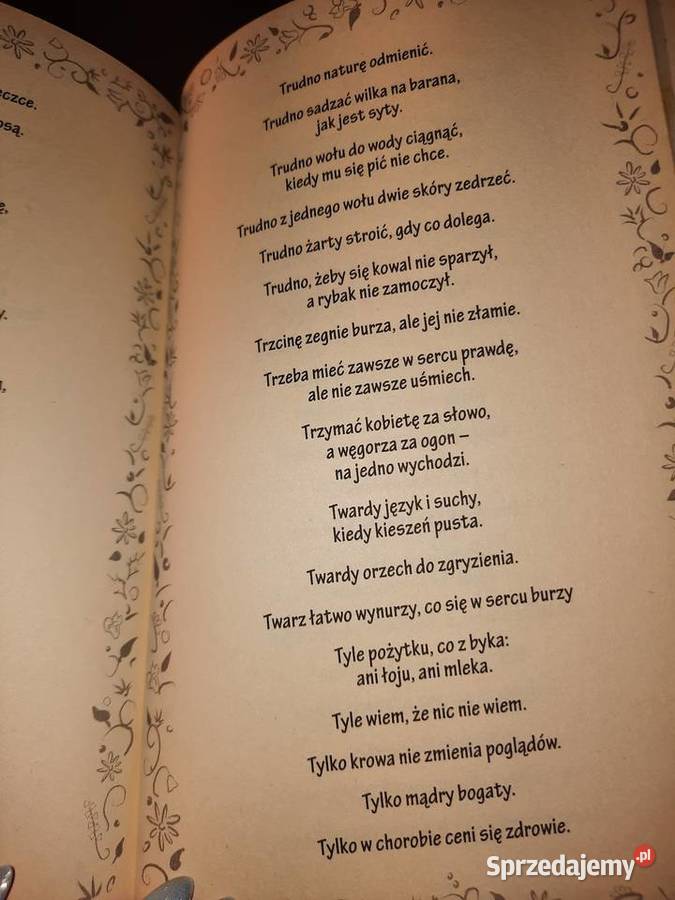 eczce.
osą.
Trudno naturę odmienić.
Trudno sadzać wilka na barana,
jak jest syty.
Trudno wołu do wody ciągnąć,
kiedy mu się pić nie chce.
Trudno z jednego wołu dwie skóry zedrzeć.
Trudno żarty stroić, gdy co dolega.
Trudno, żeby się kowal nie sparzył,
a rybak nie zamoczył.
Trzcinę zegnie burza, ale jej nie złamie.
Trzeba mieć zawsze w sercu prawdę,
ale nie zawsze uśmiech.
Trzymać kobietę za słowo,
a węgorza za ogon –
na jedno wychodzi.
Twardy język i suchy,
kiedy kieszeń pusta.
Twardy orzech do zgryzienia.
Twarz łatwo wynurzy, co się w sercu burzy
Tyle pożytku, co z byka:
ani łoju, ani mleka.
Tyle wiem, że nic nie wiem.
Tylko krowa nie zmienia poglądów.
Tylko mądry bogaty.
Tylko w chorobie ceni się zdrowie.
Sprzedajemy.pl